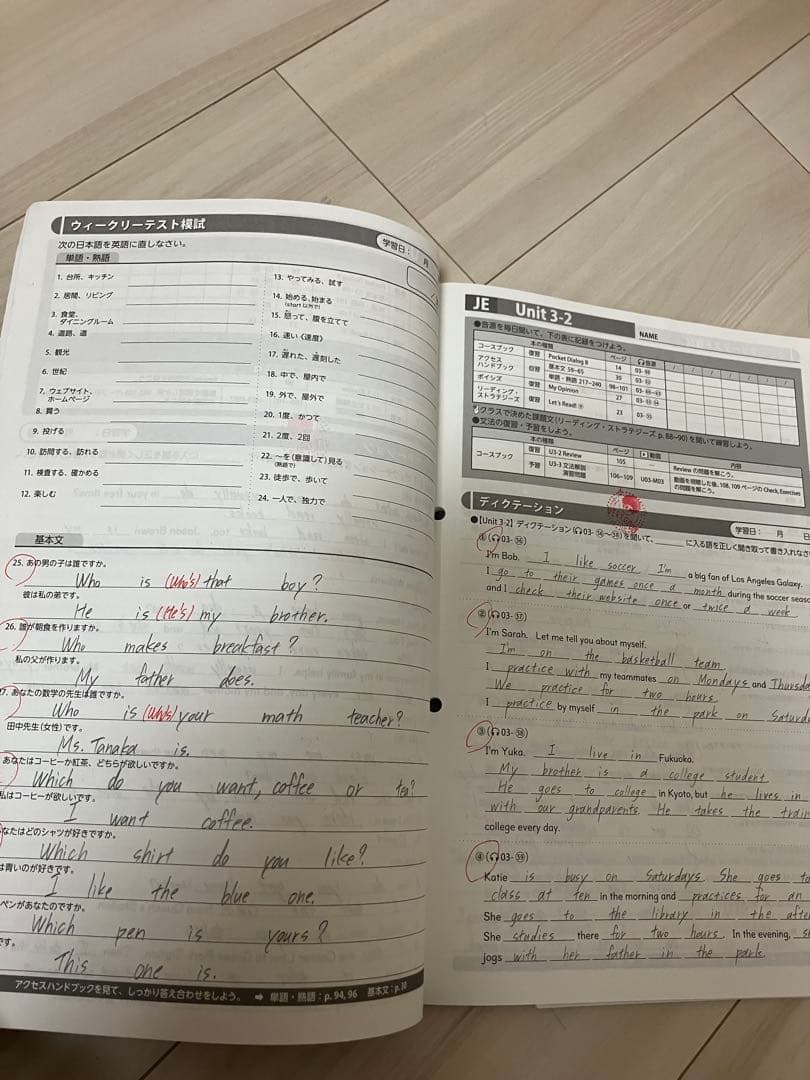 ウィークリーテスト模試
学習日： 月
次の日本語を英語に直しなさい。
単語・熟語
1. 台所、キッチン
2. 居間、リビング
3. 食堂、
ダイニングルーム
4. 道路、道
5. 観光
6. 世紀
7. ウェブサイト、
ホームページ
8. 買う
9. 投げる
10. 訪問する、訪れる
11. 検査する、確かめる
12. 楽しむ
13. やってみる、試す
14. 始める、始まる
(start 以外で)
15. 怒って、腹を立てて
16. 速い〈速度〉
17. 遅れた、遅刻した
18. 中で、屋内で
19. 外で、屋外で
20. 1度、かつて
21. 2度、2回
22. 〜を(意識して)見る
(熟語で)
23. 徒歩で、歩いて
24. 一人で、独力で
基本文
25. あの男の子は誰ですか。
Who is (Who's) that boy?
彼は私の弟です。
He is (He's) my brother.
26. 誰が朝食を作りますか。
Who makes breakfast?
私の父が作ります。
My father does.
7. あなたの数学の先生は誰ですか。
Who is (Who's) your math teacher?
田中先生(女性)です。
Ms. Tanaka is.
あなたはコーヒーか紅茶、どちらが欲しいですか。
Which do you want, coffee or tea?
私はコーヒーが欲しいです。
I want coffee.
なたはどのシャツが好きですか。
Which shirt do you like?
は青いのが好きです。
I like the blue one.
ペンがあなたのですか。
Which pen is yours?
です。
This one is.
アクセスハンドブックを見て、しっかり答え合わせをしよう。 ➡ 単語・熟語：p.94, 96 基本文：p.30
JE Unit 3-2
NAME
●音源を毎日聞いて、下の表に記録をつけよう。
本の種類 ページ 音源 / / / / / / /
コースブック 復習 Pocket Dialog 8 14
アクセス
ハンドブック 自習 基本文 59-65 35
単語・熟語 217-240 98-101
ボイシズ 復習 My Opinion 27
リーディング・
ストラテジーズ 復習 Let's Read! 23
クラスで決めた課題文(リーディング・ストラテジーズ p.88~90)を聞いて練習しよう。
●文法の復習・予習をしよう。
本の種類 ページ 動画 内容
コースブック 復習 U3-2 Review 105 Review の問題を解こう。
予習 U3-3 文法解説
演習問題 106~109 U03-M03 動画を視聴した後、108, 109 ページの Check, Exercises
の問題を解こう。
ディクテーション
学習日： 月 日
●【Unit 3-2】ディクテーション(03-56~59)を聞いて、 に入る語を正しく聞き取って書き入れなさ
①(03-56)
I'm Bob. I like soccer. I'm a big fan of Los Angeles Galaxy.
I go to their games once a month during the soccer seas
and I check their website once or twice a week
②(03-57)
I'm Sarah. Let me tell you about myself.
I'm on the basketball team
I practice with my teammates on Mondays and Thursda
We practice for two hours
I practice by myself in the park on Saturda
③(03-58)
I'm Yuka. I live in Fukuoka.
My brother is a college student
He goes to college in Kyoto, but he lives in
with our grandparents. He takes the train
college every day.
④(03-59)
Katie is busy on Saturdays She goes to
class at ten in the morning and practices for an
She goes to the library in the after
She studies there for two hours. In the evening, s
jogs with her father in the park